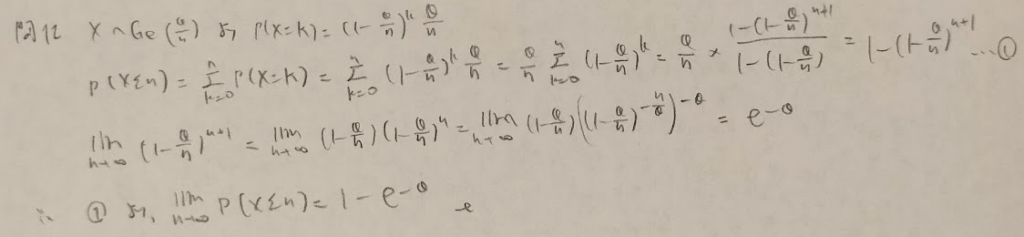 問12 X~Ge(θ/n) より P(X=k)=(1-θ/n)^k θ/n
P(X≦n)=Σ_{k=0}^{n} P(X=k)=Σ_{k=0}^{n} (1-θ/n)^k θ/n = θ/n Σ_{k=0}^{n} (1-θ/n)^k = θ/n × (1-(1-θ/n)^{n+1})/(1-(1-θ/n)) = 1-(1-θ/n)^{n+1} …①
lim_{n→∞} (1-θ/n)^{n+1} = lim_{n→∞} (1-θ/n)(1-θ/n)^n = lim_{n→∞} (1-θ/n)((1-θ/n)^{-n/θ})^{-θ} = e^{-θ}
∴ ①より, lim_{n→∞} P(X≦n)=1-e^{-θ}